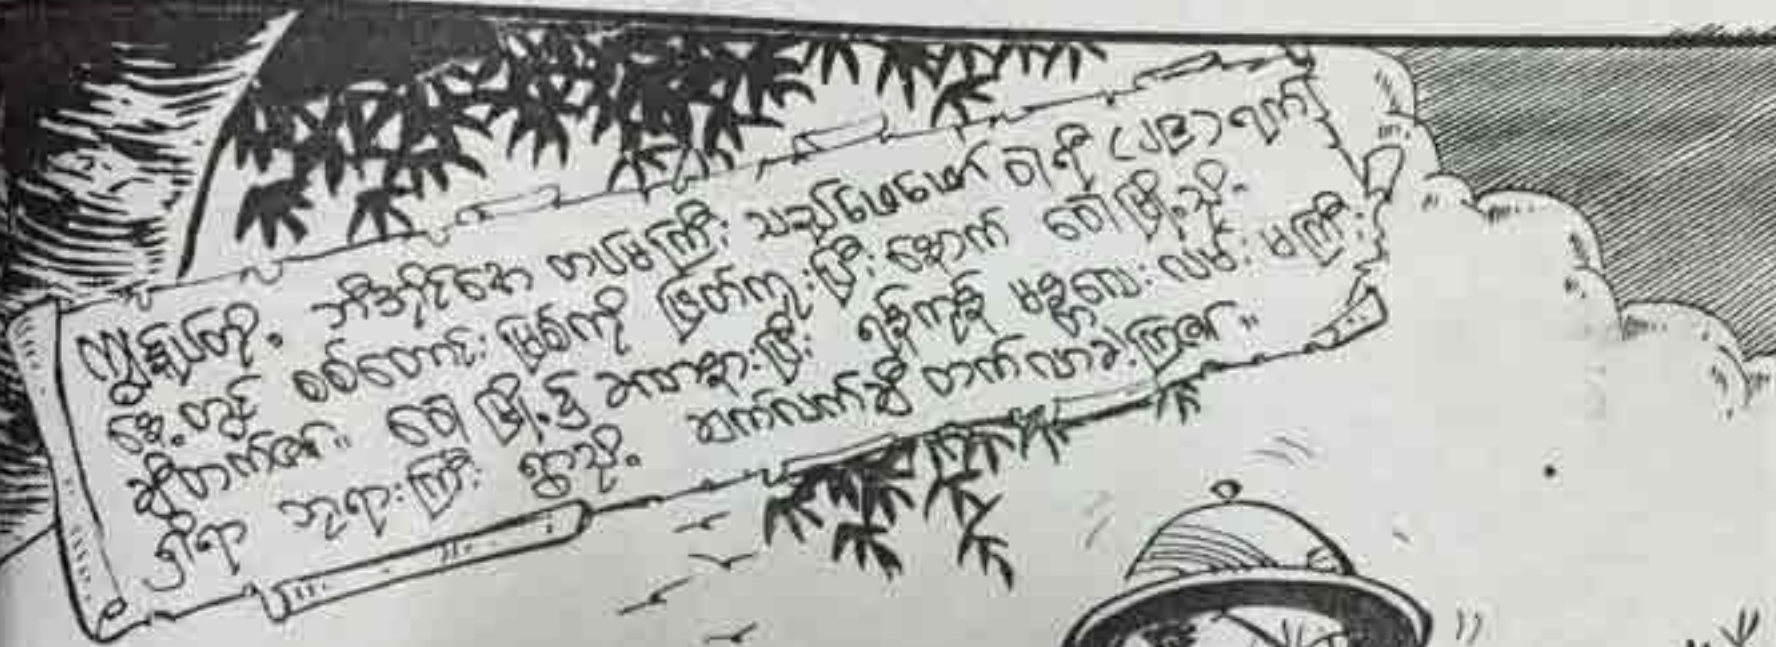 ကျွန်ုပ်တို့ ဘီအိုင်အေ တပ်မကြီး သည်ဖေဖော် ဝါရီ (၂၉) ရက်
နေ့တွင် စစ်တောင်း မြစ်ကို ဖြတ်ကူးပြီး နောက် ဝေါမြို့သို့
ချီတက်၏။ ဝေါ မြို့၌ အထနားပြီး ရန်ကုန် မန္တလေး လမ်း မကြီး
ရှိရာ ဘုရားကြီး ရွာသို့ ဆက်လက်ချီ တက်လာခဲ့ကြ၏။